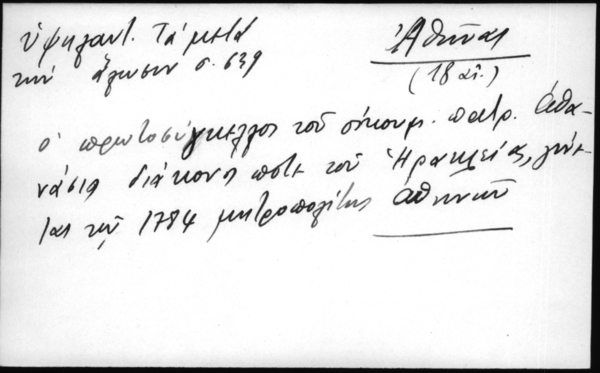 Ὑψηλαντ. Τὰ μετὰ
τὴν ἅλωσιν σ. 639
Ἀθῆναι
(18 αἰ.)
ὁ πρωτοσύγκελλος τοῦ οἰκουμ. πατρ. Ἀθα-
νάσιος διάκονος ποτὲ τοῦ Ἡρακλείας, γίνε-
ται τῷ 1784 μητροπολίτης Ἀθηνῶν